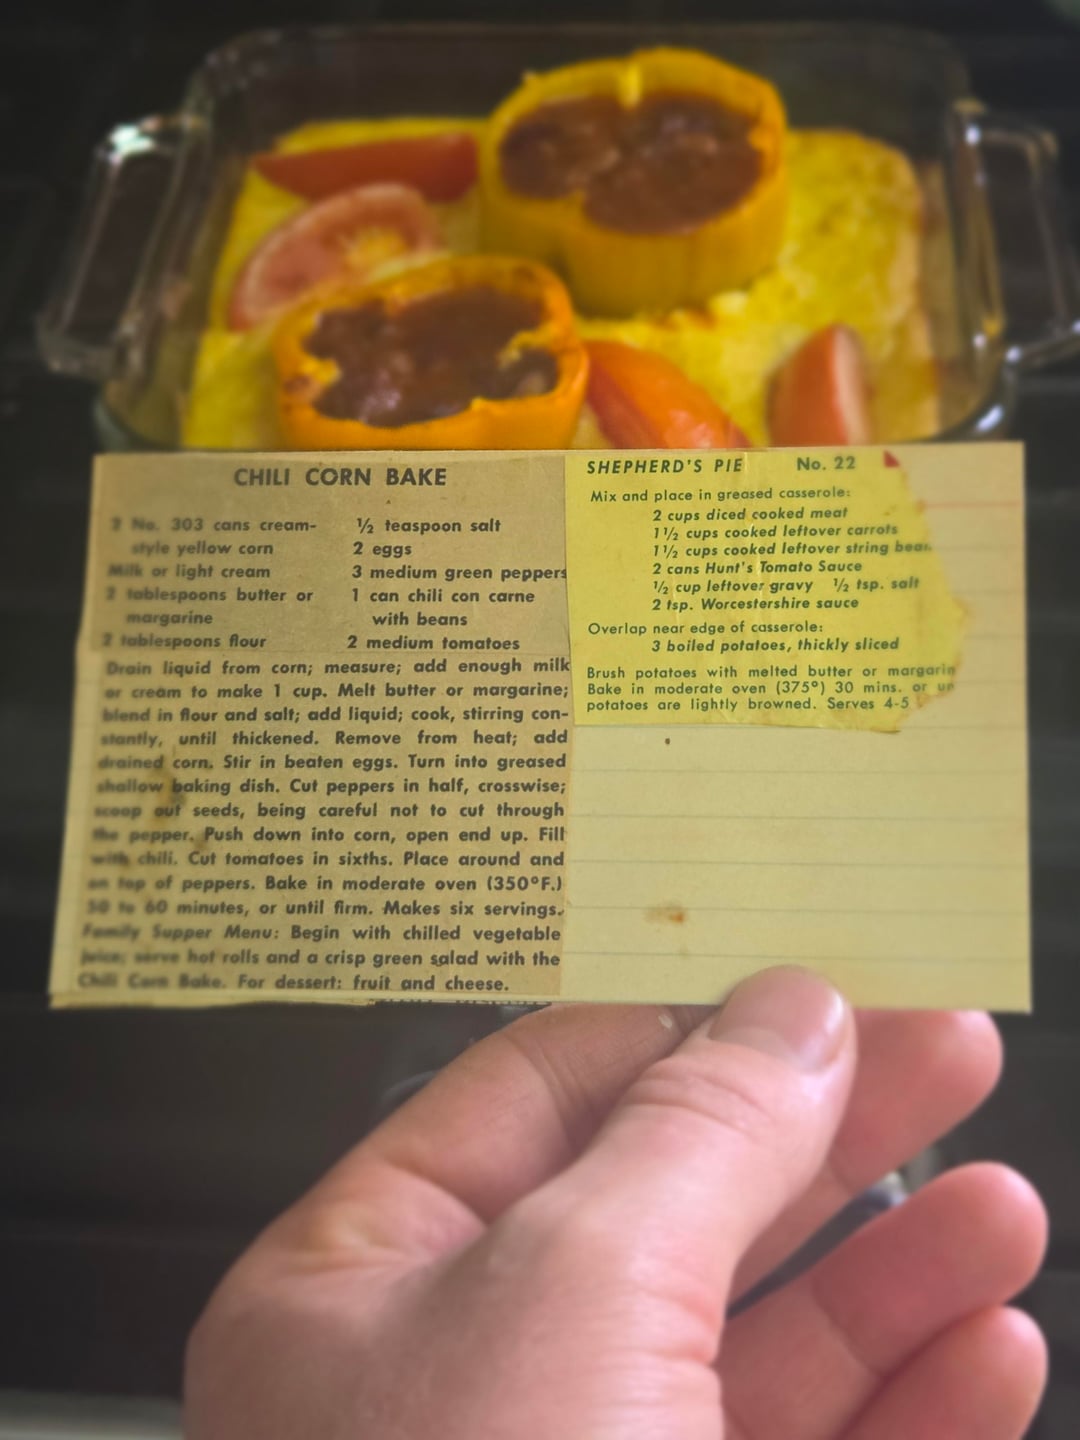 CHILI CORN BAKE
2 No. 303 cans cream-
style yellow corn
Milk or light cream
2 tablespoons butter or
margarine
2 tablespoons flour
½ teaspoon salt
2 eggs
3 medium green peppers
1 can chili con carne
with beans
2 medium tomatoes
Drain liquid from corn; measure; add enough milk
or cream to make 1 cup. Melt butter or margarine;
blend in flour and salt; add liquid; cook, stirring con-
stantly, until thickened. Remove from heat; add
drained corn. Stir in beaten eggs. Turn into greased
shallow baking dish. Cut peppers in half, crosswise;
scoop out seeds, being careful not to cut through
the pepper. Push down into corn, open end up. Fill
with chili. Cut tomatoes in sixths. Place around and
on top of peppers. Bake in moderate oven (350°F.)
50 to 60 minutes, or until firm. Makes six servings.
Family Supper Menu: Begin with chilled vegetable
juice; serve hot rolls and a crisp green salad with the
Chili Corn Bake. For dessert: fruit and cheese.
SHEPHERD'S PIE No. 22
Mix and place in greased casserole:
2 cups diced cooked meat
1½ cups cooked leftover carrots
1½ cups cooked leftover string bean
2 cans Hunt's Tomato Sauce
½ cup leftover gravy ½ tsp. salt
2 tsp. Worcestershire sauce
Overlap near edge of casserole:
3 boiled potatoes, thickly sliced
Brush potatoes with melted butter or margarin
Bake in moderate oven (375°) 30 mins. or un
potatoes are lightly browned. Serves 4-5